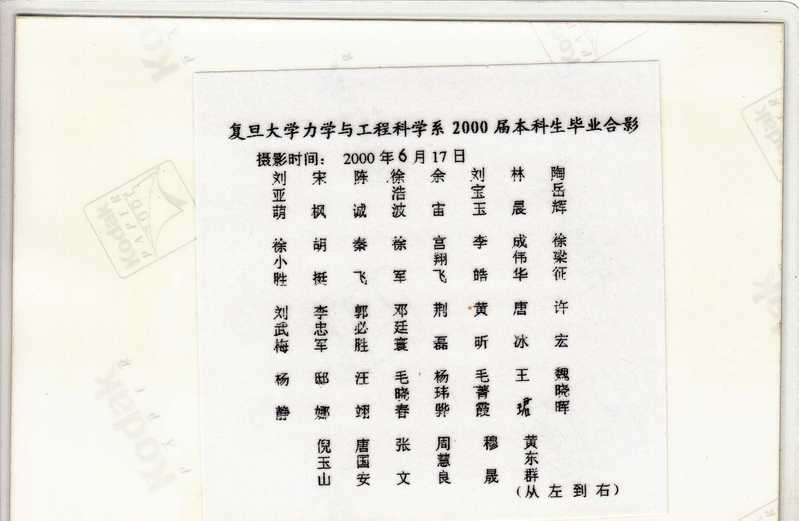 复旦大学力学与工程科学系 2000 届本科生毕业合影
摄影时间： 2000 年 6 月 17 日
刘亚萌 宋枫 陈诚 徐浩波 余宙 刘宝玉 林晨 陶岳辉
徐小胜 胡挺 秦飞 徐军 宫翔飞 李皓 成伟华 徐梁征
刘武梅 李忠军 郭必胜 邓廷寰 荆磊 黄昕 唐冰 许宏
杨静 邸娜 汪翊 毛晓春 杨玮骅 毛菁霞 王珺 魏晓晖
倪玉山 唐国安 张文 周慧良 穆晟 黄东群
（从左到右）
Kodak
Kodak
Kodak
Kodak
PAPER
Kodak
Kodak